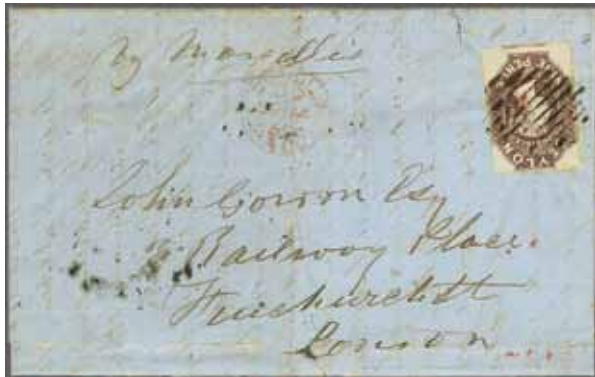 by Marseilles
CEYLON
John Gowon Esq
Railway Place.
Fenchurch St
London